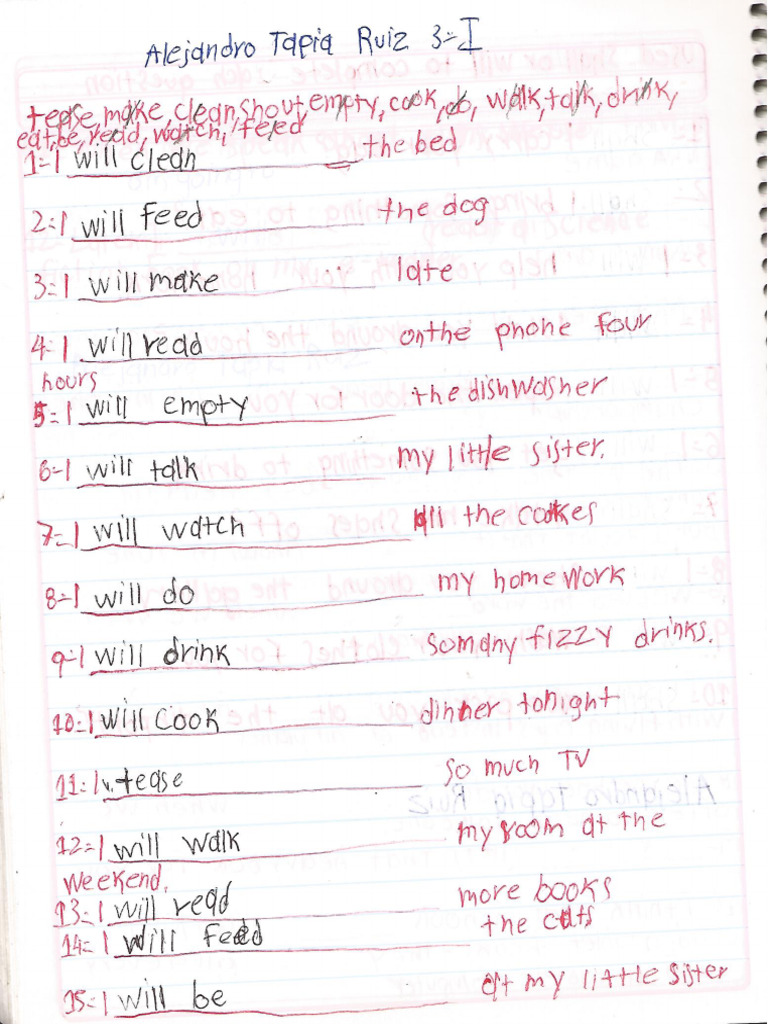 Alejandro Tapia Ruiz 3=I
tease, make, clean, shout, empty, cook, do, walk, talk, drink,
eat, be, read, watch, feed
1=I will clean the bed
2=I will feed the dog
3=I will make late
4=I will read on the phone four
hours
5=I will empty the dishwasher
6=I will talk my little sister.
7=I will watch all the cookes
8=I will do my homework
9=I will drink so many fizzy drinks.
10=I will cook dinner tonight
11=I w. tease so much TV
12=I will walk my room at the
weekend.
13=I will read more books
14=I will feed the cats
15=I will be at my little sister